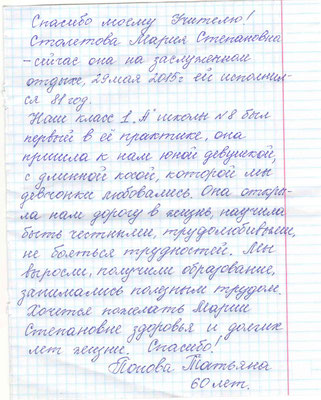 Спасибо моему Учителю!
Столетова Мария Степановна
- сейчас она на заслуженном
отдыхе, 29 мая 2015г ей исполнил-
ся 81 год.
Наш класс 1 "А" школы №8 был
первый в её практике, она
пришла к нам юной девушкой,
с длинной косой, которой мы
девчонки любовались. Она откры-
ла нам дорогу в жизнь, научила
быть честными, трудолюбивыми,
не бояться трудностей. Мы
выросли, получили образование,
занимались полезным трудом.
Хочется пожелать Марии
Степановне здоровья и долгих
лет жизни. Спасибо!
Попова Татьяна
60 лет.